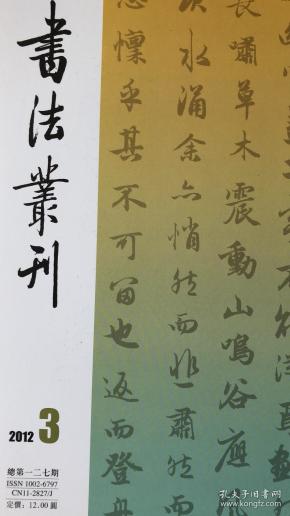 書法叢刊
長嘯草木震動山鳴谷應
水涌余亦悄然而悲肅然而
恐懍乎其不可留也返而登舟
2012 3
總第一二七期
ISSN 1002-6797
CN11-2827/J
定價：12.00圓
孔夫子旧书网